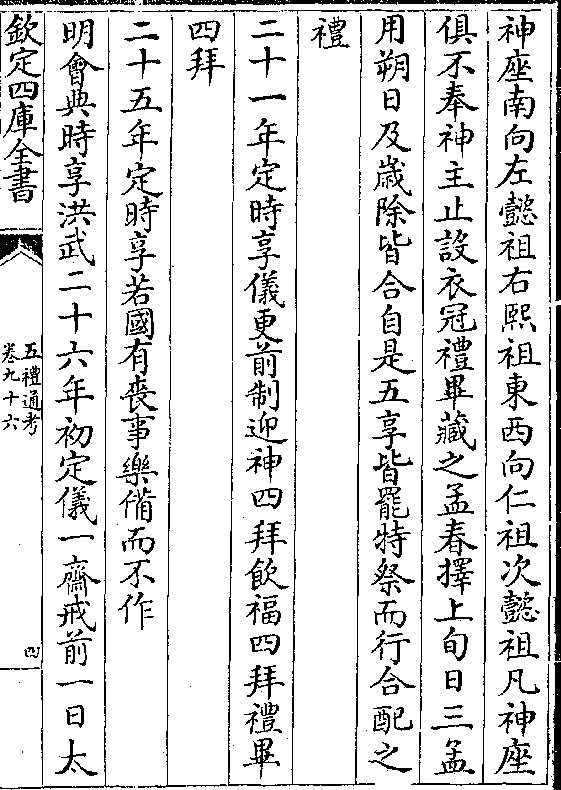 神座南向左懿祖右熙祖東西向仁祖次懿祖凡神座
俱不奉神主止設衣冠禮畢藏之孟春擇上旬日三孟
用朔日及歲除皆合自是五享皆罷特祭而行合配之
禮
二十一年定時享儀更前制迎神四拜飲福四拜禮畢
四拜
二十五年定時享若國有喪事樂備而不作
明會典時享洪武二十六年初定儀一齋戒前一日太
欽定四庫全書
五禮通考
卷九十六
四